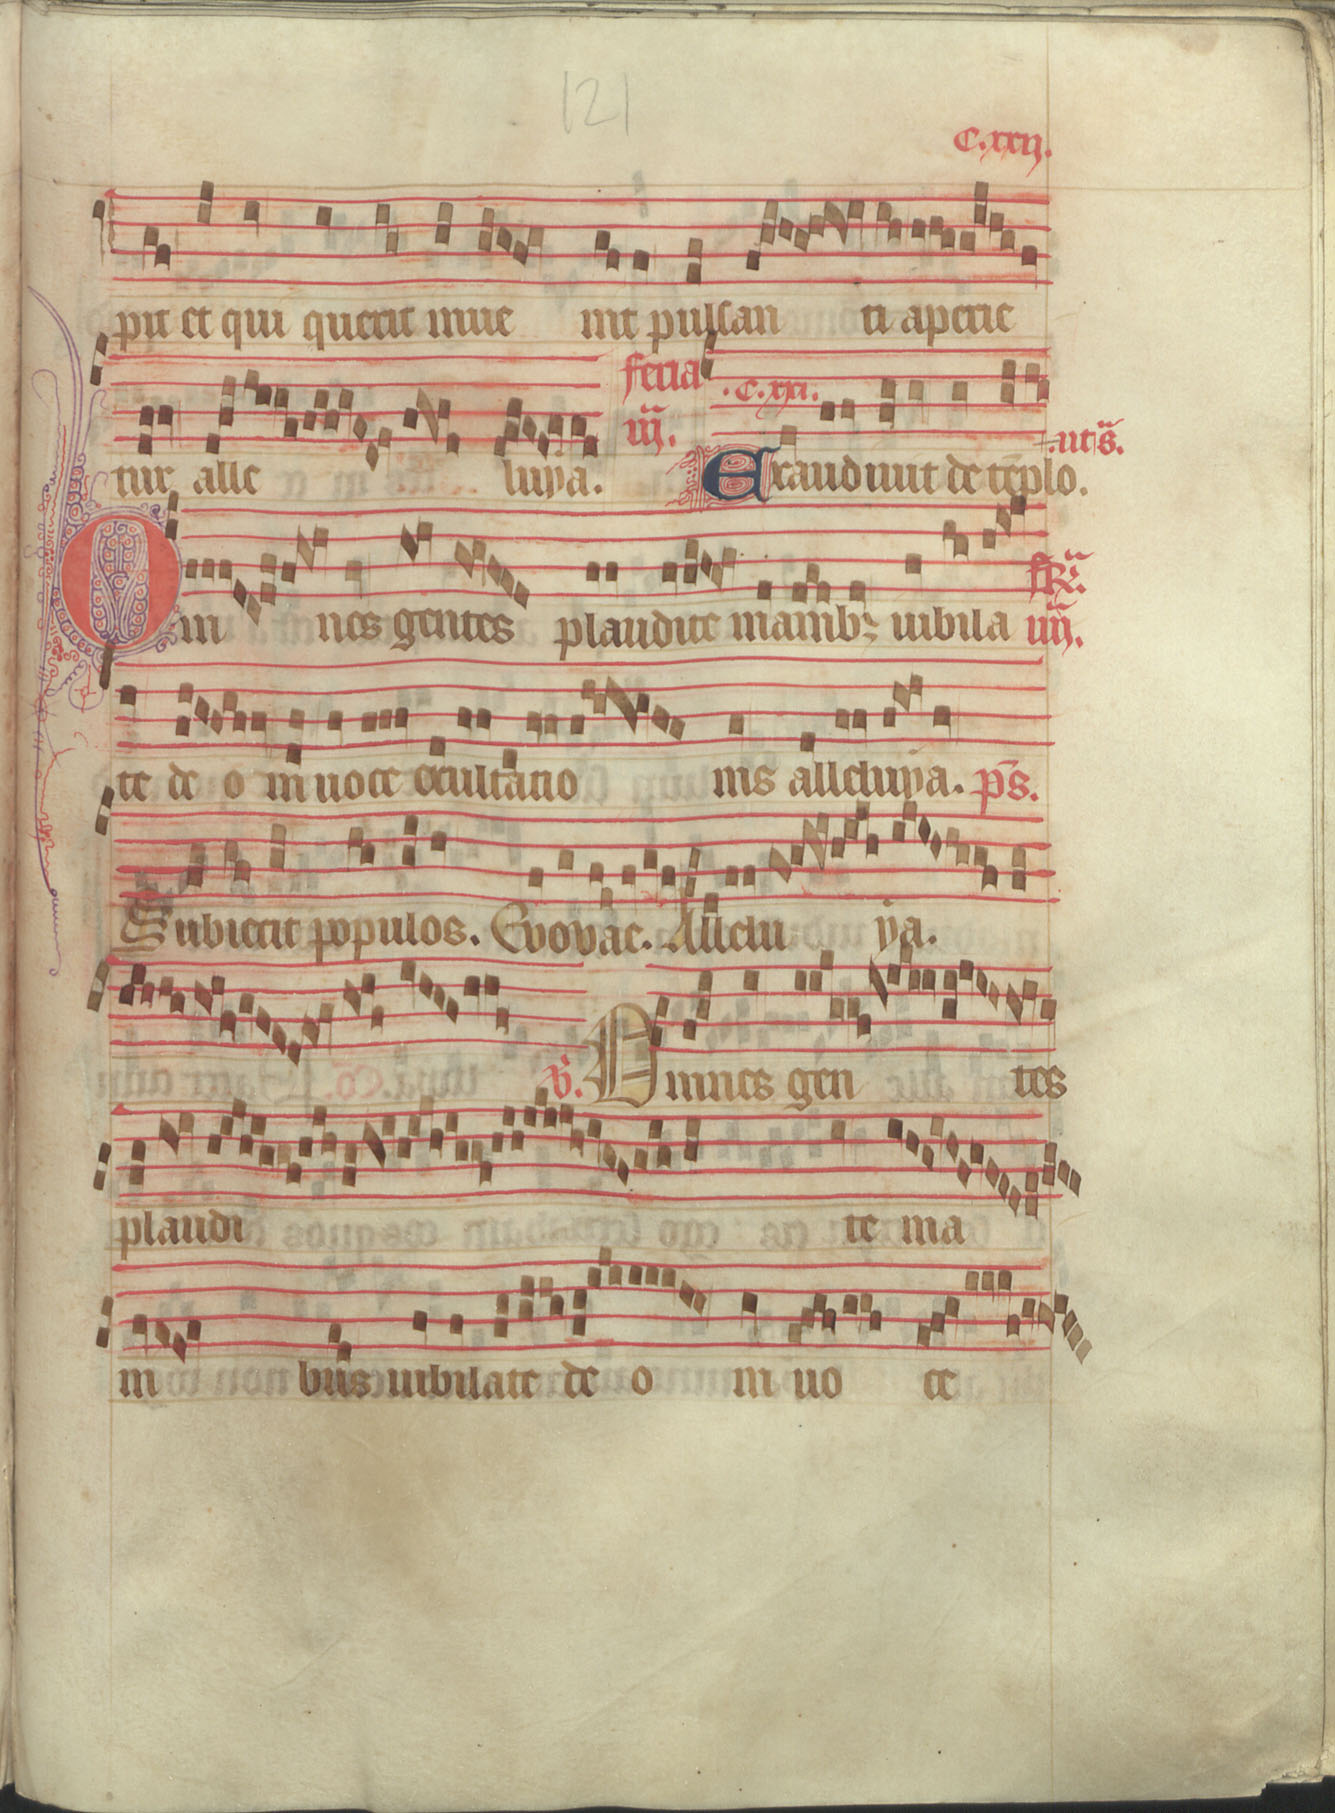 121
C.xxij.
pit et qui querit inue nit pulsan ti aperie
Feria .C.xxi.
iij. .ut s̄.
tur alle luya. Exaudiuit de tēplo.
Om nes gentes plaudite manibꝫ iubila
iiij.
te de o in uoce exultatio nis alleluya. p̄s.
Subiecit populos. Evovae. Allelu ya.
V̄. Omnes gen tes
plaudi te ma
ni bus iubilate de o in uo ce